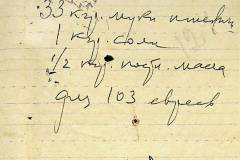 33 кгр. муки пшениц
1 кгр. соли
1/2 кгр. пост. масла
для 103 евреев